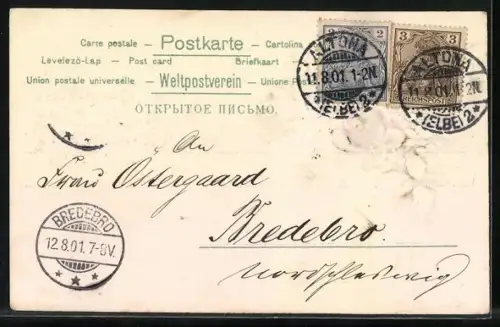 Carte postale — Postkarte — Cartolina
Levelező-Lap — Post card Briefkaart
Union postale universelle — Weltpostverein — Unione Pos
ОТКРЫТОЕ ПИСЬМО.
2 2
3 3
ALTONA
11.8.01. 1-2N.
*(ELBE) 2*
ALTONA
11.8.01. 1-2N.
*(ELBE) 2*
An
Frau Östergaard
Bredebro.
Nordschleswig
BREDEBRO
12.8.01. 7-8V.